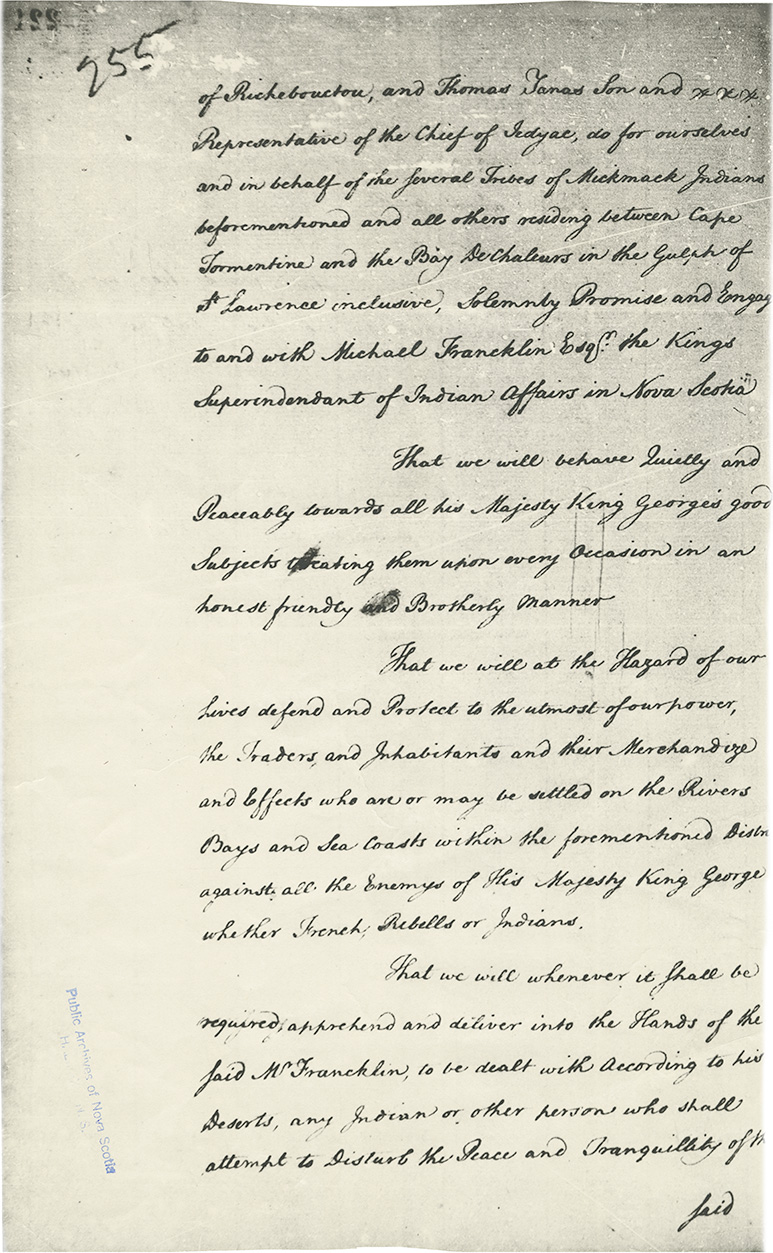 255
of Richebouctou, and Thomas Tanas Son and
Representative of the Chief of Jedyac, do for ourselves
and in behalf of the several Tribes of Mickmack Indians
beforementioned and all others residing between Cape
Tormentine and the Bay DeChaleurs in the Gulph of
St Lawrence inclusive, Solemnly Promise and Engag
to and with Michael Francklin Esqr. the Kings
Superindendant of Indian Affairs in Nova Scotia
That we will behave Quietly and
Peaceably towards all his Majesty King George's good
Subjects treating them upon every Occasion in an
honest friendly and Brotherly Manner
That we will at the Hazard of our
Lives defend and Protect to the utmost of our power,
the Traders, and Inhabitants and their Merchandize
and Effects who are or may be settled on the Rivers
Bays and Sea Coasts within the forementioned Distr
against all the Enemys of His Majesty King George
whether French, Rebells or Indians.
That we will whenever it shall be
required, apprehend and deliver into the Hands of the
said Mr Francklin, to be dealt with According to his
Deserts, any Indian or other person who shall
attempt to Disturb the Peace and Tranquillity of th
said
Public Archives of Nova Scotia